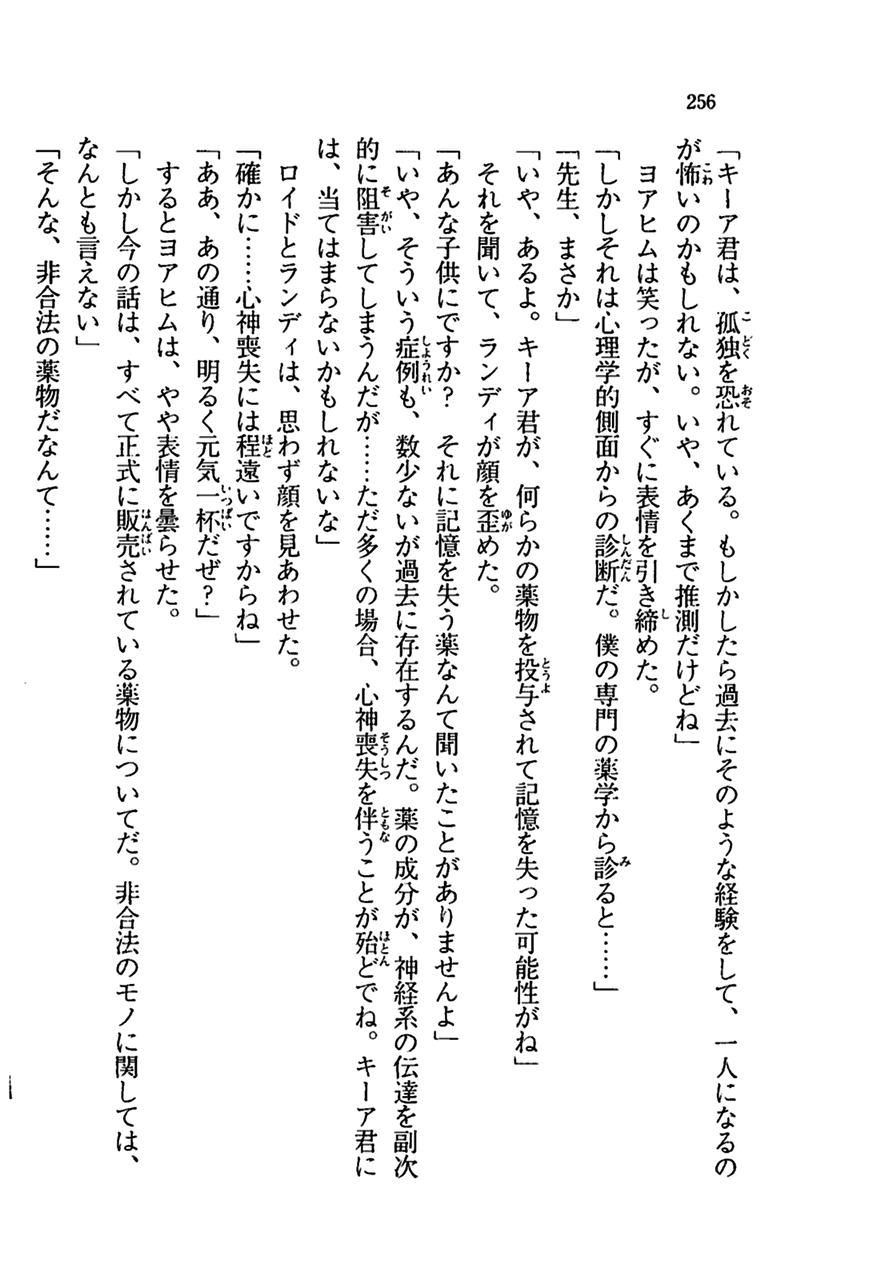 256
「キーア君は、孤独を恐れている。もしかしたら過去にそのような経験をして、一人になるの
が怖いのかもしれない。いや、あくまで推測だけどね」
ヨアヒムは笑ったが、すぐに表情を引き締めた。
「しかしそれは心理学的側面からの診断だ。僕の専門の薬学から診ると……」
「先生、まさか」
「いや、あるよ。キーア君が、何らかの薬物を投与されて記憶を失った可能性がね」
それを聞いて、ランディが顔を歪めた。
「あんな子供にですか？　それに記憶を失う薬なんて聞いたことがありませんよ」
「いや、そういう症例も、数少ないが過去に存在するんだ。薬の成分が、神経系の伝達を副次
的に阻害してしまうんだが……ただ多くの場合、心神喪失を伴うことが殆どでね。キーア君に
は、当てはまらないかもしれないな」
ロイドとランディは、思わず顔を見あわせた。
「確かに……心神喪失には程遠いですからね」
「ああ、あの通り、明るく元気一杯だぜ？」
するとヨアヒムは、やや表情を曇らせた。
「しかし今の話は、すべて正式に販売されている薬物についてだ。非合法のモノに関しては、
なんとも言えない」
「そんな、非合法の薬物だなんて……」